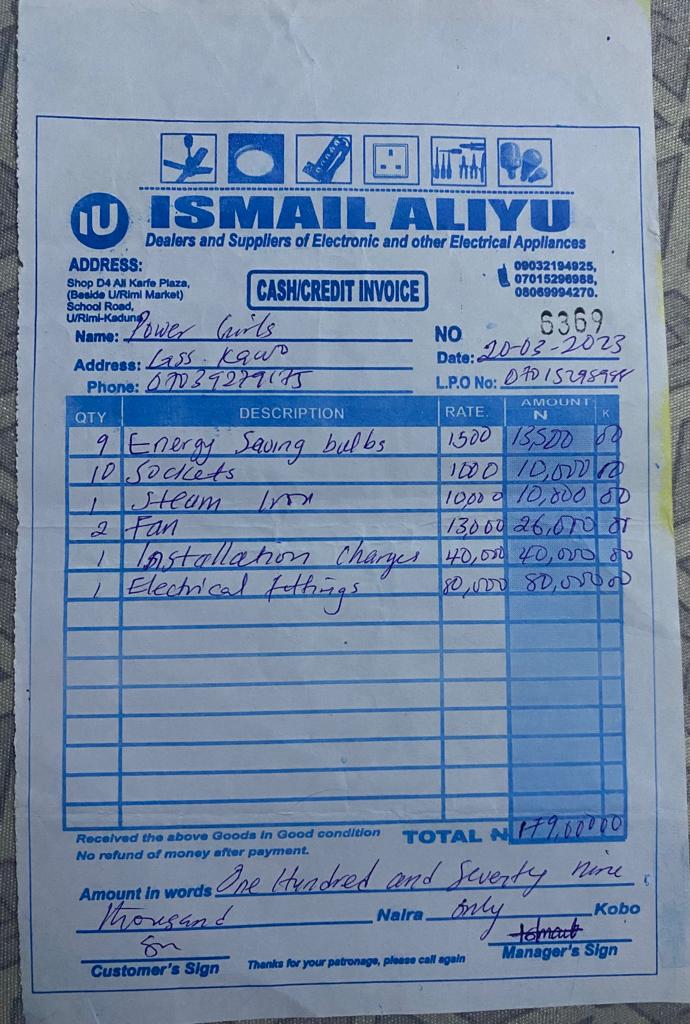 IU ISMAIL ALIYU
Dealers and Suppliers of Electronic and other Electrical Appliances
ADDRESS:
Shop D4 Ali Karfe Plaza,
(Beside U/Rimi Market)
School Road,
U/Rimi-Kaduna
CASH/CREDIT INVOICE
09032194925,
07015296988,
08069994270.
Name: Power Girls
NO 6369
Address: Kawo
Date: 20-03-2023
Phone: 07039279175
L.P.O No:
QTY DESCRIPTION RATE. AMOUNT
N K
9 Energy Saving bulbs 1500 13,500 00
10 Sockets 1000 10,000 00
1 Steam Iron 10,000 10,000 00
2 Fan 13,000 26,000 00
1 Installation Charges 40,000 40,000 00
1 Electrical fittings 80,000 80,000 00
Received the above Goods in Good condition
No refund of money after payment.
TOTAL N 179,000 00
Amount in words One Hundred and Seventy nine
thousand Naira only Kobo
Customer's Sign
Thanks for your patronage, please call again
Manager's Sign